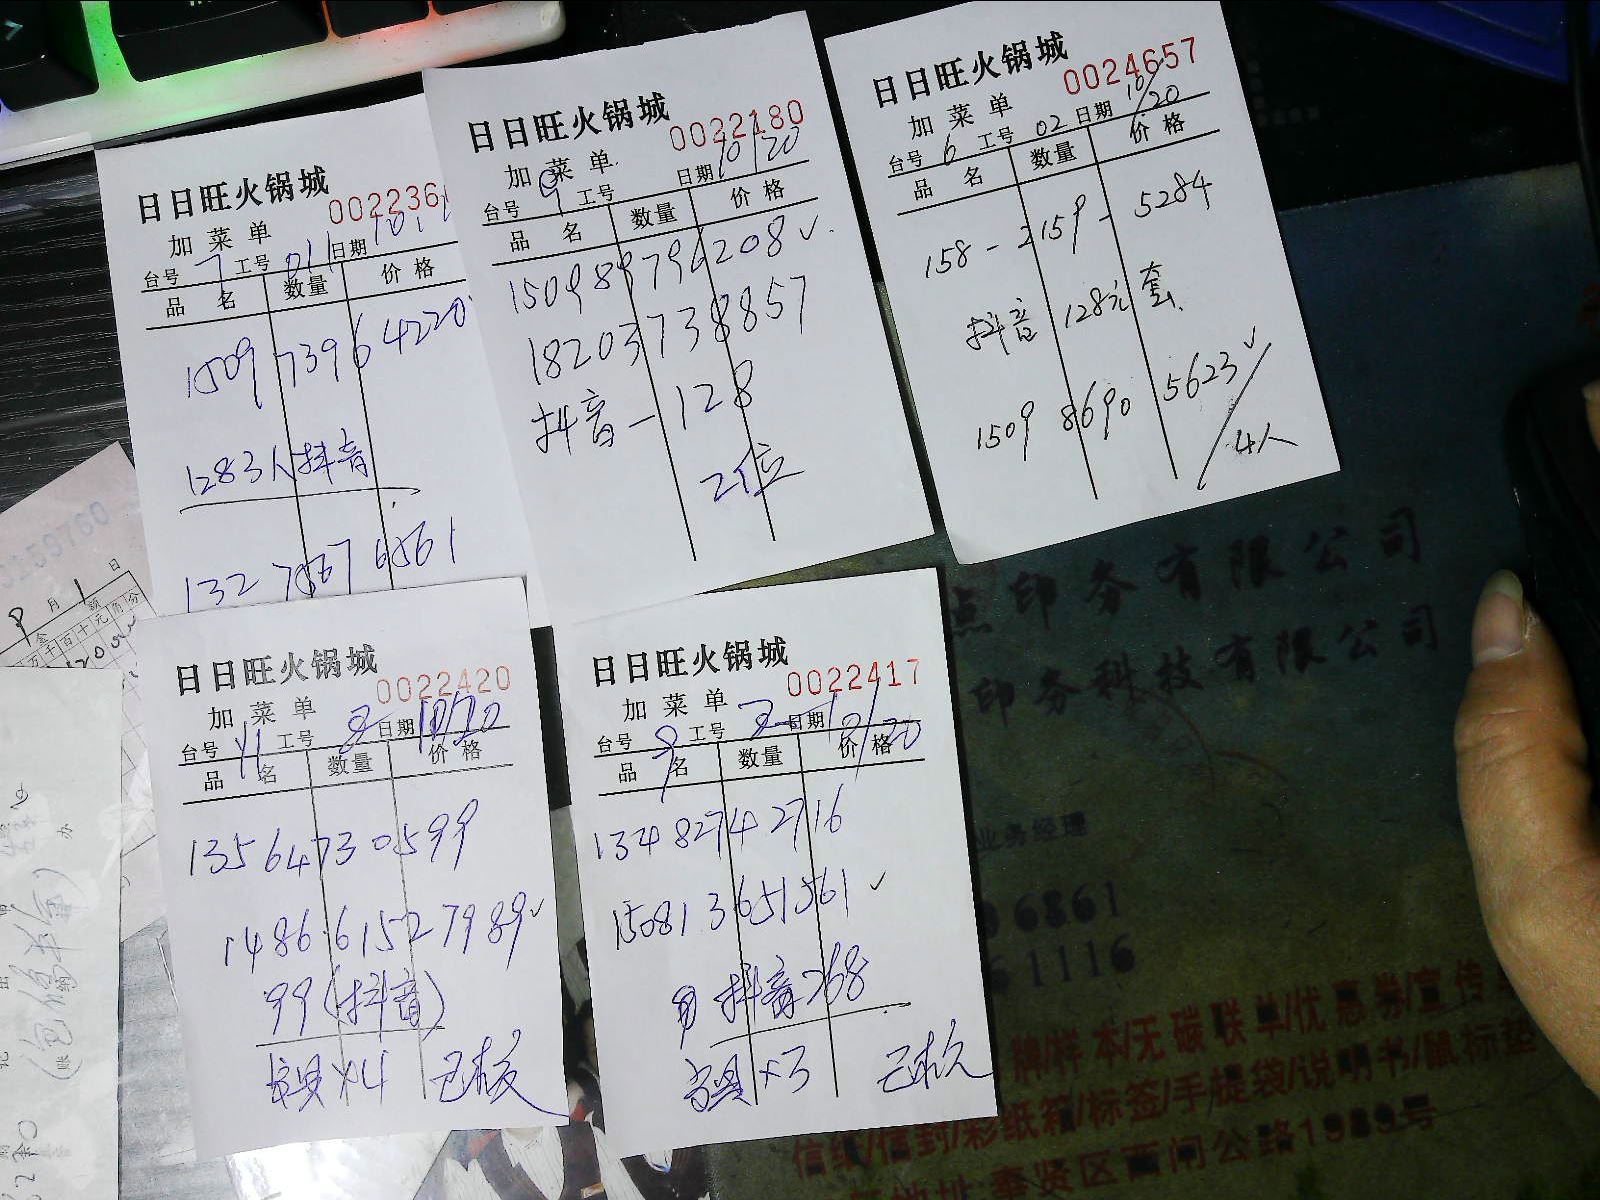 日日旺火锅城
002236
加菜单
台号 7 工号 011 日期 10
品名 数量 价格
1509 7396 4220
128 3人 抖音
132 7567 6561
日日旺火锅城
0022180
加菜单
台号 9 工号 日期 10/20
品名 数量 价格
150989796208✓
18203738857
抖音-128
2位
日日旺火锅城
0024657
加菜单
台号 6 工号 02 日期 10/20
品名 数量 价格
158-2159-5284
抖音 128元 套
1509 8690 5623✓
4人
日日旺火锅城
0022420
加菜单
台号 Y1 工号 2 日期 10/20
品名 数量 价格
13564730599
148661527989✓
99(抖音)
餐具x4 已核
日日旺火锅城
0022417
加菜单
台号 9 工号 2 日期 10/20
品名 数量 价格
13482742716
150813651561✓
抖音268
餐具x3 已核
点印务有限公司
印务科技有限公司
业务经理
6861
61116
牌/样本/无碳联单/优惠券/宣传
信纸/信封/彩纸箱/标签/手提袋/说明书/鼠标垫
地址 奉贤区西闸公路1989号
9月1日
金额
万千百十元角分